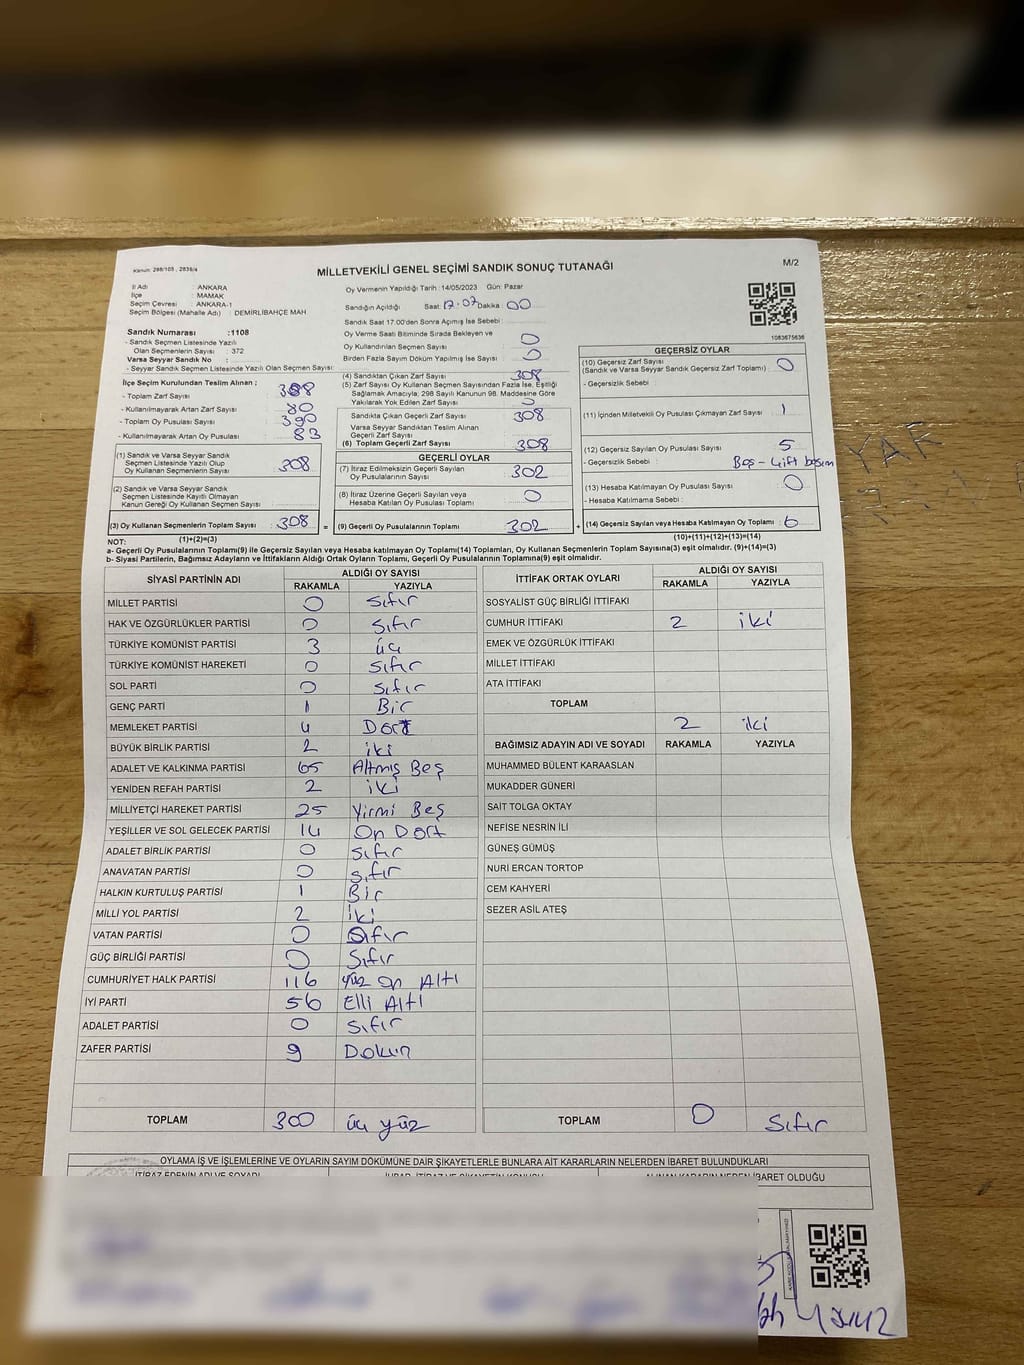 Kanun: 298/105 , 2839/4
MİLLETVEKİLİ GENEL SEÇİMİ SANDIK SONUÇ TUTANAĞI
M/2
İl Adı : ANKARA
İlçe : MAMAK
Seçim Çevresi : ANKARA-1
Seçim Bölgesi (Mahalle Adı) : DEMİRLİBAHÇE MAH
Oy Vermenin Yapıldığı Tarih :14/05/2023 Gün: Pazar
Sandığın Açıldığı Saat: 17:07 Dakika : 00
Sandık Saat 17.00'den Sonra Açmış İse Sebebi :
Sandık Numarası :1108
- Sandık Seçmen Listesinde Yazılı
Olan Seçmenlerin Sayısı : 372
Varsa Seyyar Sandık No :
- Seyyar Sandık Seçmen Listesinde Yazılı Olan Seçmen Sayısı:
Oy Verme Saati Bitiminde Sırada Bekleyen ve
Oy Kullandırılan Seçmen Sayısı : 0
Birden Fazla Sayım Döküm Yapılmış İse Sayısı : 0
1083675636
İlçe Seçim Kurulundan Teslim Alınan ;
- Toplam Zarf Sayısı : 388
- Kullanılmayarak Artan Zarf Sayısı : 80
- Toplam Oy Pusulası Sayısı : 390
- Kullanılmayarak Artan Oy Pusulası : 83
(1) Sandık ve Varsa Seyyar Sandık
Seçmen Listesinde Yazılı Olup
Oy Kullanan Seçmenlerin Sayısı : 308
(2) Sandık ve Varsa Seyyar Sandık
Seçmen Listesinde Kayıtlı Olmayan
Kanun Gereği Oy Kullanan Seçmenlerin Sayısı :
(3) Oy Kullanan Seçmenlerin Toplam Sayısı : 308 =
(1)+(2)=(3)
(4) Sandıktan Çıkan Zarf Sayısı : 308
(5) Zarf Sayısı Oy Kullanan Seçmen Sayısından Fazla İse, Eşitliği
Sağlamak Amacıyla; 298 Sayılı Kanunun 98. Maddesine Göre
Yakılarak Yok Edilen Zarf Sayısı :
Sandıkta Çıkan Geçerli Zarf Sayısı : 308
Varsa Seyyar Sandıktan Teslim Alınan
Geçerli Zarf Sayısı :
(6) Toplam Geçerli Zarf Sayısı : 308
GEÇERLİ OYLAR
(7) İtiraz Edilmeksizin Geçerli Sayılan
Oy Pusulalarının Sayısı : 302
(8) İtiraz Üzerine Geçerli Sayılan veya
Hesaba Katılan Oy Pusulası Toplamı : 0
(9) Geçerli Oy Pusulalarının Toplamı : 302 +
GEÇERSİZ OYLAR
(10) Geçersiz Zarf Sayısı
(Sandık ve Varsa Seyyar Sandık Geçersiz Zarf Toplamı) : 0
- Geçersizlik Sebebi :
(11) İçinden Milletvekili Oy Pusulası Çıkmayan Zarf Sayısı : 1
(12) Geçersiz Sayılan Oy Pusulası Sayısı : 5
- Geçersizlik Sebebi : Beş - Çift basım
(13) Hesaba Katılmayan Oy Pusulası Sayısı : 0
- Hesaba Katılmama Sebebi :
(14) Geçersiz Sayılan veya Hesaba Katılmayan Oy Toplamı : 6
(10)+(11)+(12)+(13)=(14)
NOT:
a- Geçerli Oy Pusulalarının Toplamı(9) ile Geçersiz Sayılan veya Hesaba katılmayan Oy Toplamı(14) Toplamları, Oy Kullanan Seçmenlerin Toplam Sayısına(3) eşit olmalıdır. (9)+(14)=(3)
b- Siyasi Partilerin, Bağımsız Adayların ve İttifakların Aldığı Oy Ortak Oyların Toplamı, Geçerli Oy Pusulalarının Toplamına(9) eşit olmalıdır.
SİYASİ PARTİNİN ADI ALDIĞI OY SAYISI
RAKAMLA YAZIYLA
MİLLET PARTİSİ 0 Sıfır
HAK VE ÖZGÜRLÜKLER PARTİSİ 0 Sıfır
TÜRKİYE KOMÜNİST PARTİSİ 3 üç
TÜRKİYE KOMÜNİST HAREKETİ 0 Sıfır
SOL PARTİ 0 Sıfır
GENÇ PARTİ 1 Bir
MEMLEKET PARTİSİ 4 Dört
BÜYÜK BİRLİK PARTİSİ 2 iki
ADALET VE KALKINMA PARTİSİ 65 Altmış Beş
YENİDEN REFAH PARTİSİ 2 iki
MİLLİYETÇİ HAREKET PARTİSİ 25 Yirmi Beş
YEŞİLLER VE SOL GELECEK PARTİSİ 14 On Dört
ADALET BİRLİK PARTİSİ 0 Sıfır
ANAVATAN PARTİSİ 0 Sıfır
HALKIN KURTULUŞ PARTİSİ 1 Bir
MİLLİ YOL PARTİSİ 2 iki
VATAN PARTİSİ 0 Sıfır
GÜÇ BİRLİĞİ PARTİSİ 0 Sıfır
CUMHURİYET HALK PARTİSİ 116 Yüz On Altı
İYİ PARTİ 56 Elli Altı
ADALET PARTİSİ 0 Sıfır
ZAFER PARTİSİ 9 Dokuz
TOPLAM 300 üç yüz
İTTİFAK ORTAK OYLARI ALDIĞI OY SAYISI
RAKAMLA YAZIYLA
SOSYALİST GÜÇ BİRLİĞİ İTTİFAKI
CUMHUR İTTİFAKI 2 iki
EMEK VE ÖZGÜRLÜK İTTİFAKI
MİLLET İTTİFAKI
ATA İTTİFAKI
TOPLAM
2 iki
BAĞIMSIZ ADAYIN ADI VE SOYADI RAKAMLA YAZIYLA
MUHAMMED BÜLENT KARAASLAN
MUKADDER GÜNERİ
SAİT TOLGA OKTAY
NEFİSE NESRİN İLİ
GÜNEŞ GÜMÜŞ
NURİ ERCAN TORTOP
CEM KAHYERİ
SEZER ASİL ATEŞ
TOPLAM 0 Sıfır
OYLAMA İŞ VE İŞLEMLERİNE VE OYLARIN SAYIM DÖKÜMÜNE DAİR ŞİKAYETLERLE BUNLARA AİT KARARLARIN NELERDEN İBARET BULUNDUKLARI
İTİRAZ EDENİN ADI VE SOYADI
ALINAN KARARIN NEDEN İBARET OLDUĞU
YAR